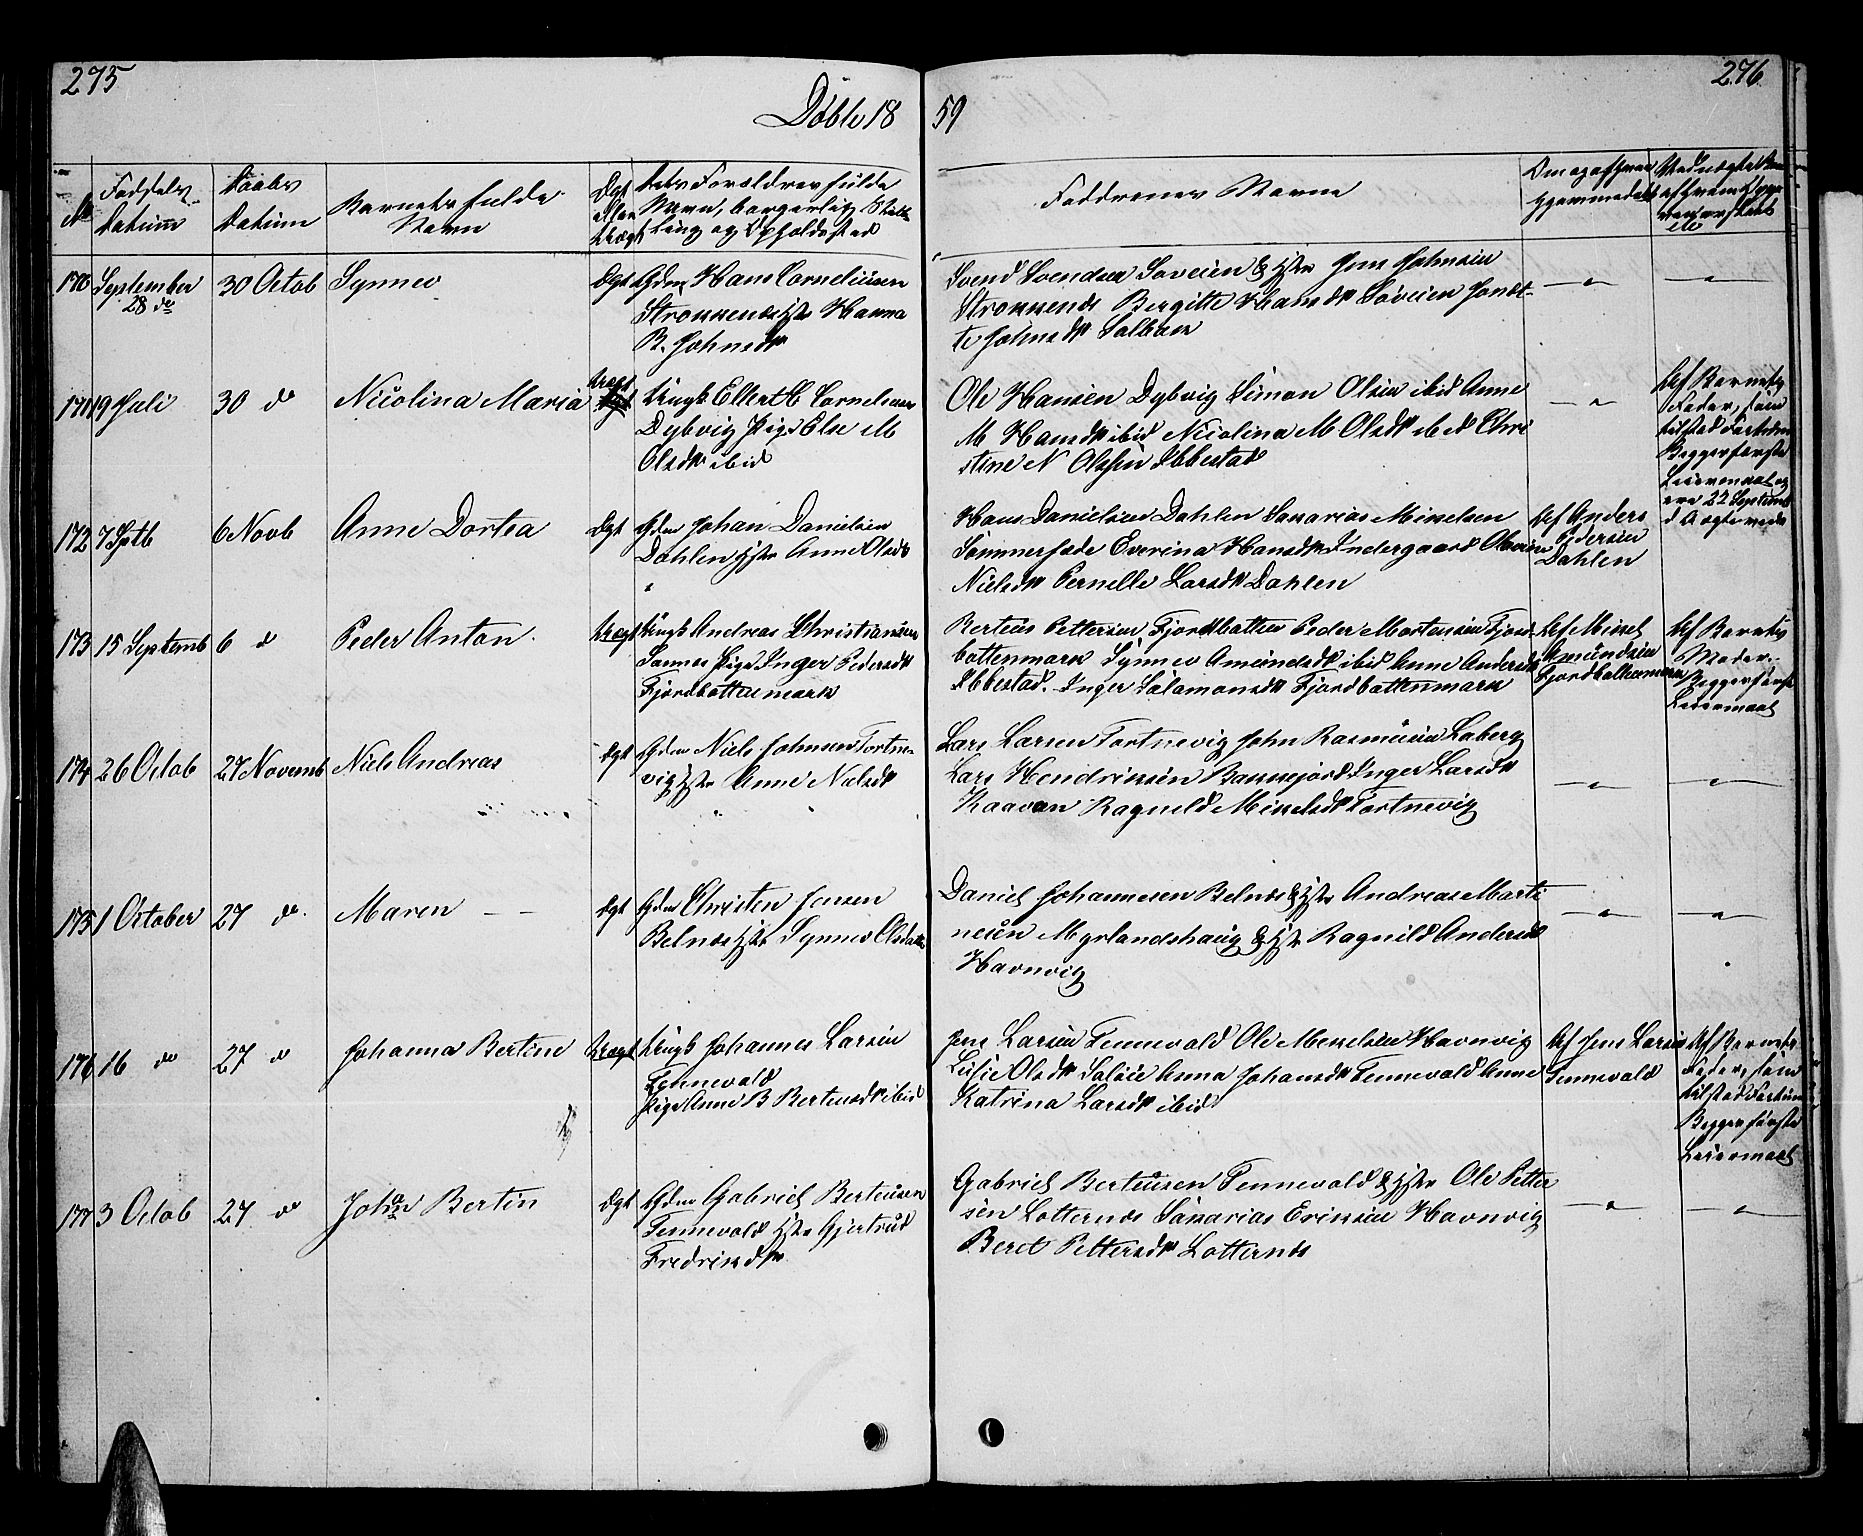 275
276
Døbte 18 59
No
Fødsels
Datum
Daabs
Datum
Barnets fulde
Navn
Ægt
eller
Uægt
Dets Forældres fulde
Navn, borgerlig Stil-
ling og Opholdssted
Faddernes Navne
Om og af hvem
hjemmedøbt
170 September
28 de
30 Octob
Synnev
Ægt
Gdm Hans Corneliusen
Strokkenes Hst Hanna
B. Johnsdtr
Svend Svendsen Søveien & Hst Jens Johnsen
Strokkenes Bergitte Hansdtr Søveien Jonet-
te Johnsdtr Salban
171 19 Juli
30 do
Nicolina Maria
Uægt
Ungk Ellert H Corneliusen
Dybvig Pige Else M
Olsdtr ibid
Ole Hansen Dybvig Simon Olsen ibid Anne
M Hansdtr ibid Nicolina M Olsdtr ibid Chri
stine N Olsen Ibbestad
Af Barnets
Fader, som
Begges første
Leiermaal og
ere 22 Septemb
172 7 Septb
6 Novb
Anne Dortea
Ægt
Gdm Johan Danielsen
Dahlen Hst Anne Olsdtr
Hans Danielsen Dahlen Sakarias Mikelsen
Sommersæde Everina Hansdtr Indergaard
Nielsdtr Pernelle Larsdtr Dahlen
Af Anders
Pedersen
Dahlen
173 15 Septemb
6 d
Peder Anton.
Uægt
Ungk Andreas Christiansen
Sannes Pige Inger Pedersdtr
Fjordbottenmark
Berteus Pettersen Fjordbotten Peder Mortensen Fjord-
bottenmark Synnev Amundsdtr ibid Anne Andersdtr
Ibbestad. Inger Salamonsdtr Fjordbottenmark
Af Mikel
Amundsen
Fjordbottenmark
Af Barnets
Moder.
Begges første
Leiermaal
174 26 Octob
27 Novemb
Niels Andreas
Ægt
Gdm Niels Johnsen Tortne-
vig Hst Anne Nielsdtr
Lars Larsen Tortnevig John Rasmusen Laberg
Lars Hendriksen Bakkejord Inger Larsdtr
Kaavan Ragnild Mikelsdtr Tortnevig
175 1 October
27 do.
Maren
Ægt
Gdm Christen Jensen
Belnes Hst Synnev Olsdatter
Daniel Johannesen Belnes & Hst Andreas Marti
neusen Myrlandshaug & Hst Ragnild Andersdtr
Havnvig
176 16 do
27 d
Johanna Bertine
Uægt
Ungk Johannes Larsen
Tennevold
Pige Anne B Berteusdtr ibid
Jens Larsen Tennevold Ole Mikelsen Havnvig
Lusie Olsdtr Anna Johansdtr Tennevold Anne
Katrina Larsdtr ibid
Af Jens Larsen
Tennevold
Af Barnets
Fader, som
Begges første
Leiermaal
177 3 Octob
27 do
Johan Bertin
Ægt
Gdm Gabriel Berteusen
Tennevold Hst Gjertrud
Fredriksdtr
Gabriel Berteusen Tennevold & Hst Ole Petter
sen Lotternes Sakarias Eriksen Havnvig
Beret Pettersdtr Lotternes